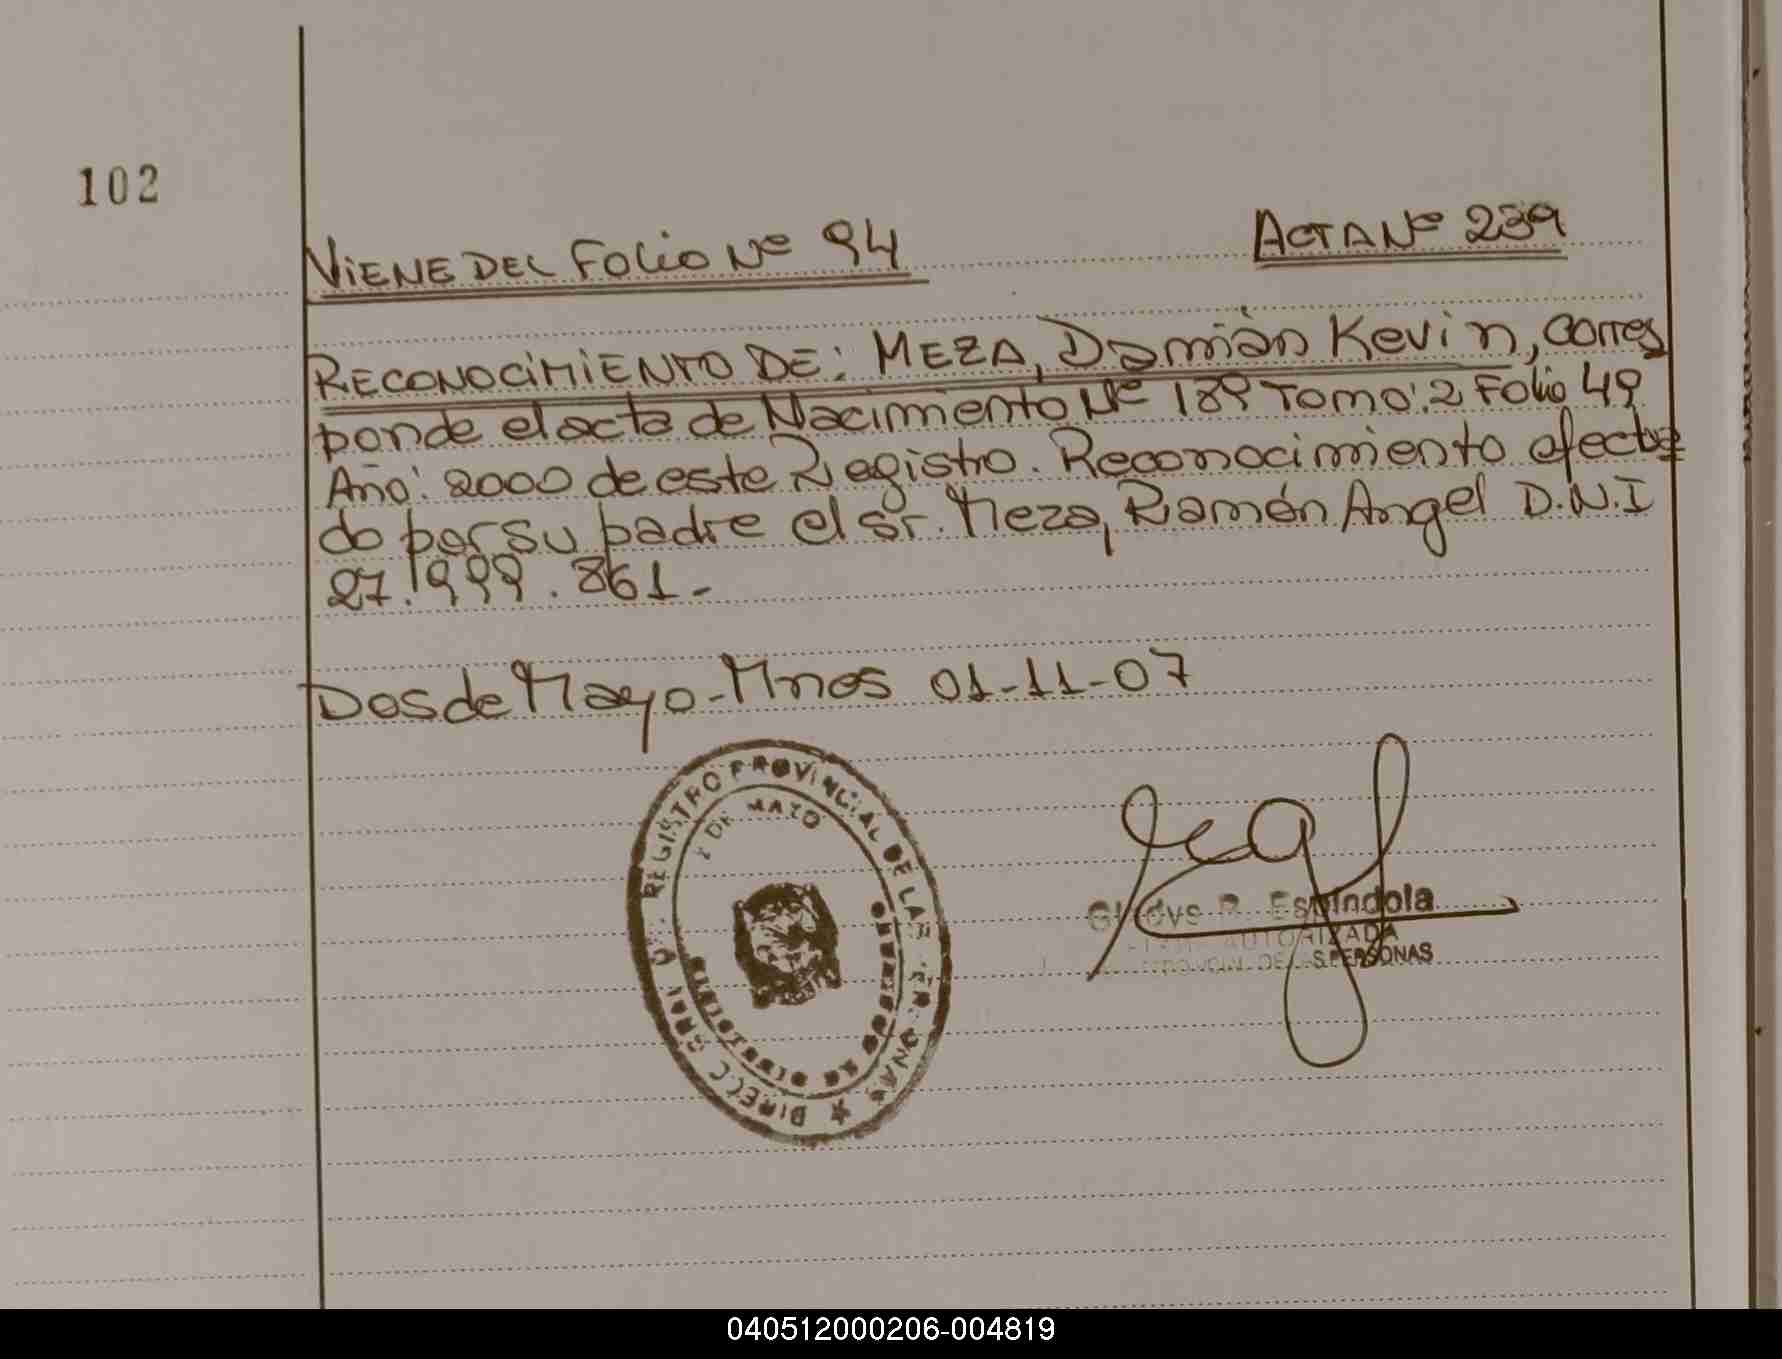 102
VIENE DEL FOLIO Nº 94 ACTA Nº 239
RECONOCIMIENTO DE: MEZA, Damián Kevin, corres
ponde el acta de Nacimiento Nº 189 Tomo: 2 Folio 49
Año: 2000 de este Registro. Reconocimiento efectua
do por su padre el sr. Meza, Ramón Angel D.N.I
27.999.861.-
Dos de Mayo-Mnes 01-11-07
REGISTRO PROVINCIAL DE LAS PERSONAS
DE MAYO
DIRECC GRAL
Gladys R. Espindola
AUTORIZADA
PERSONAS
040512000206-004819